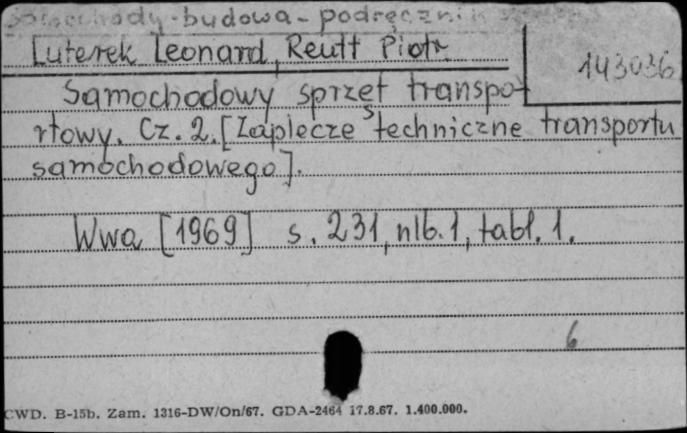 Samochody - budowa - podręcznik
Luterek Leonard, Reutt Piotr
143036
Samochodowy sprzęt transpo-
rtowy. Cz. 2. [Zaplecze techniczne transportu
samochodowego].
Wwa [1969] s. 231, nlb. 1, tabl. 1.
6
CWD. B-15b. Zam. 1316-DW/On/67. GDA-2464 17.8.67. 1.400.000.